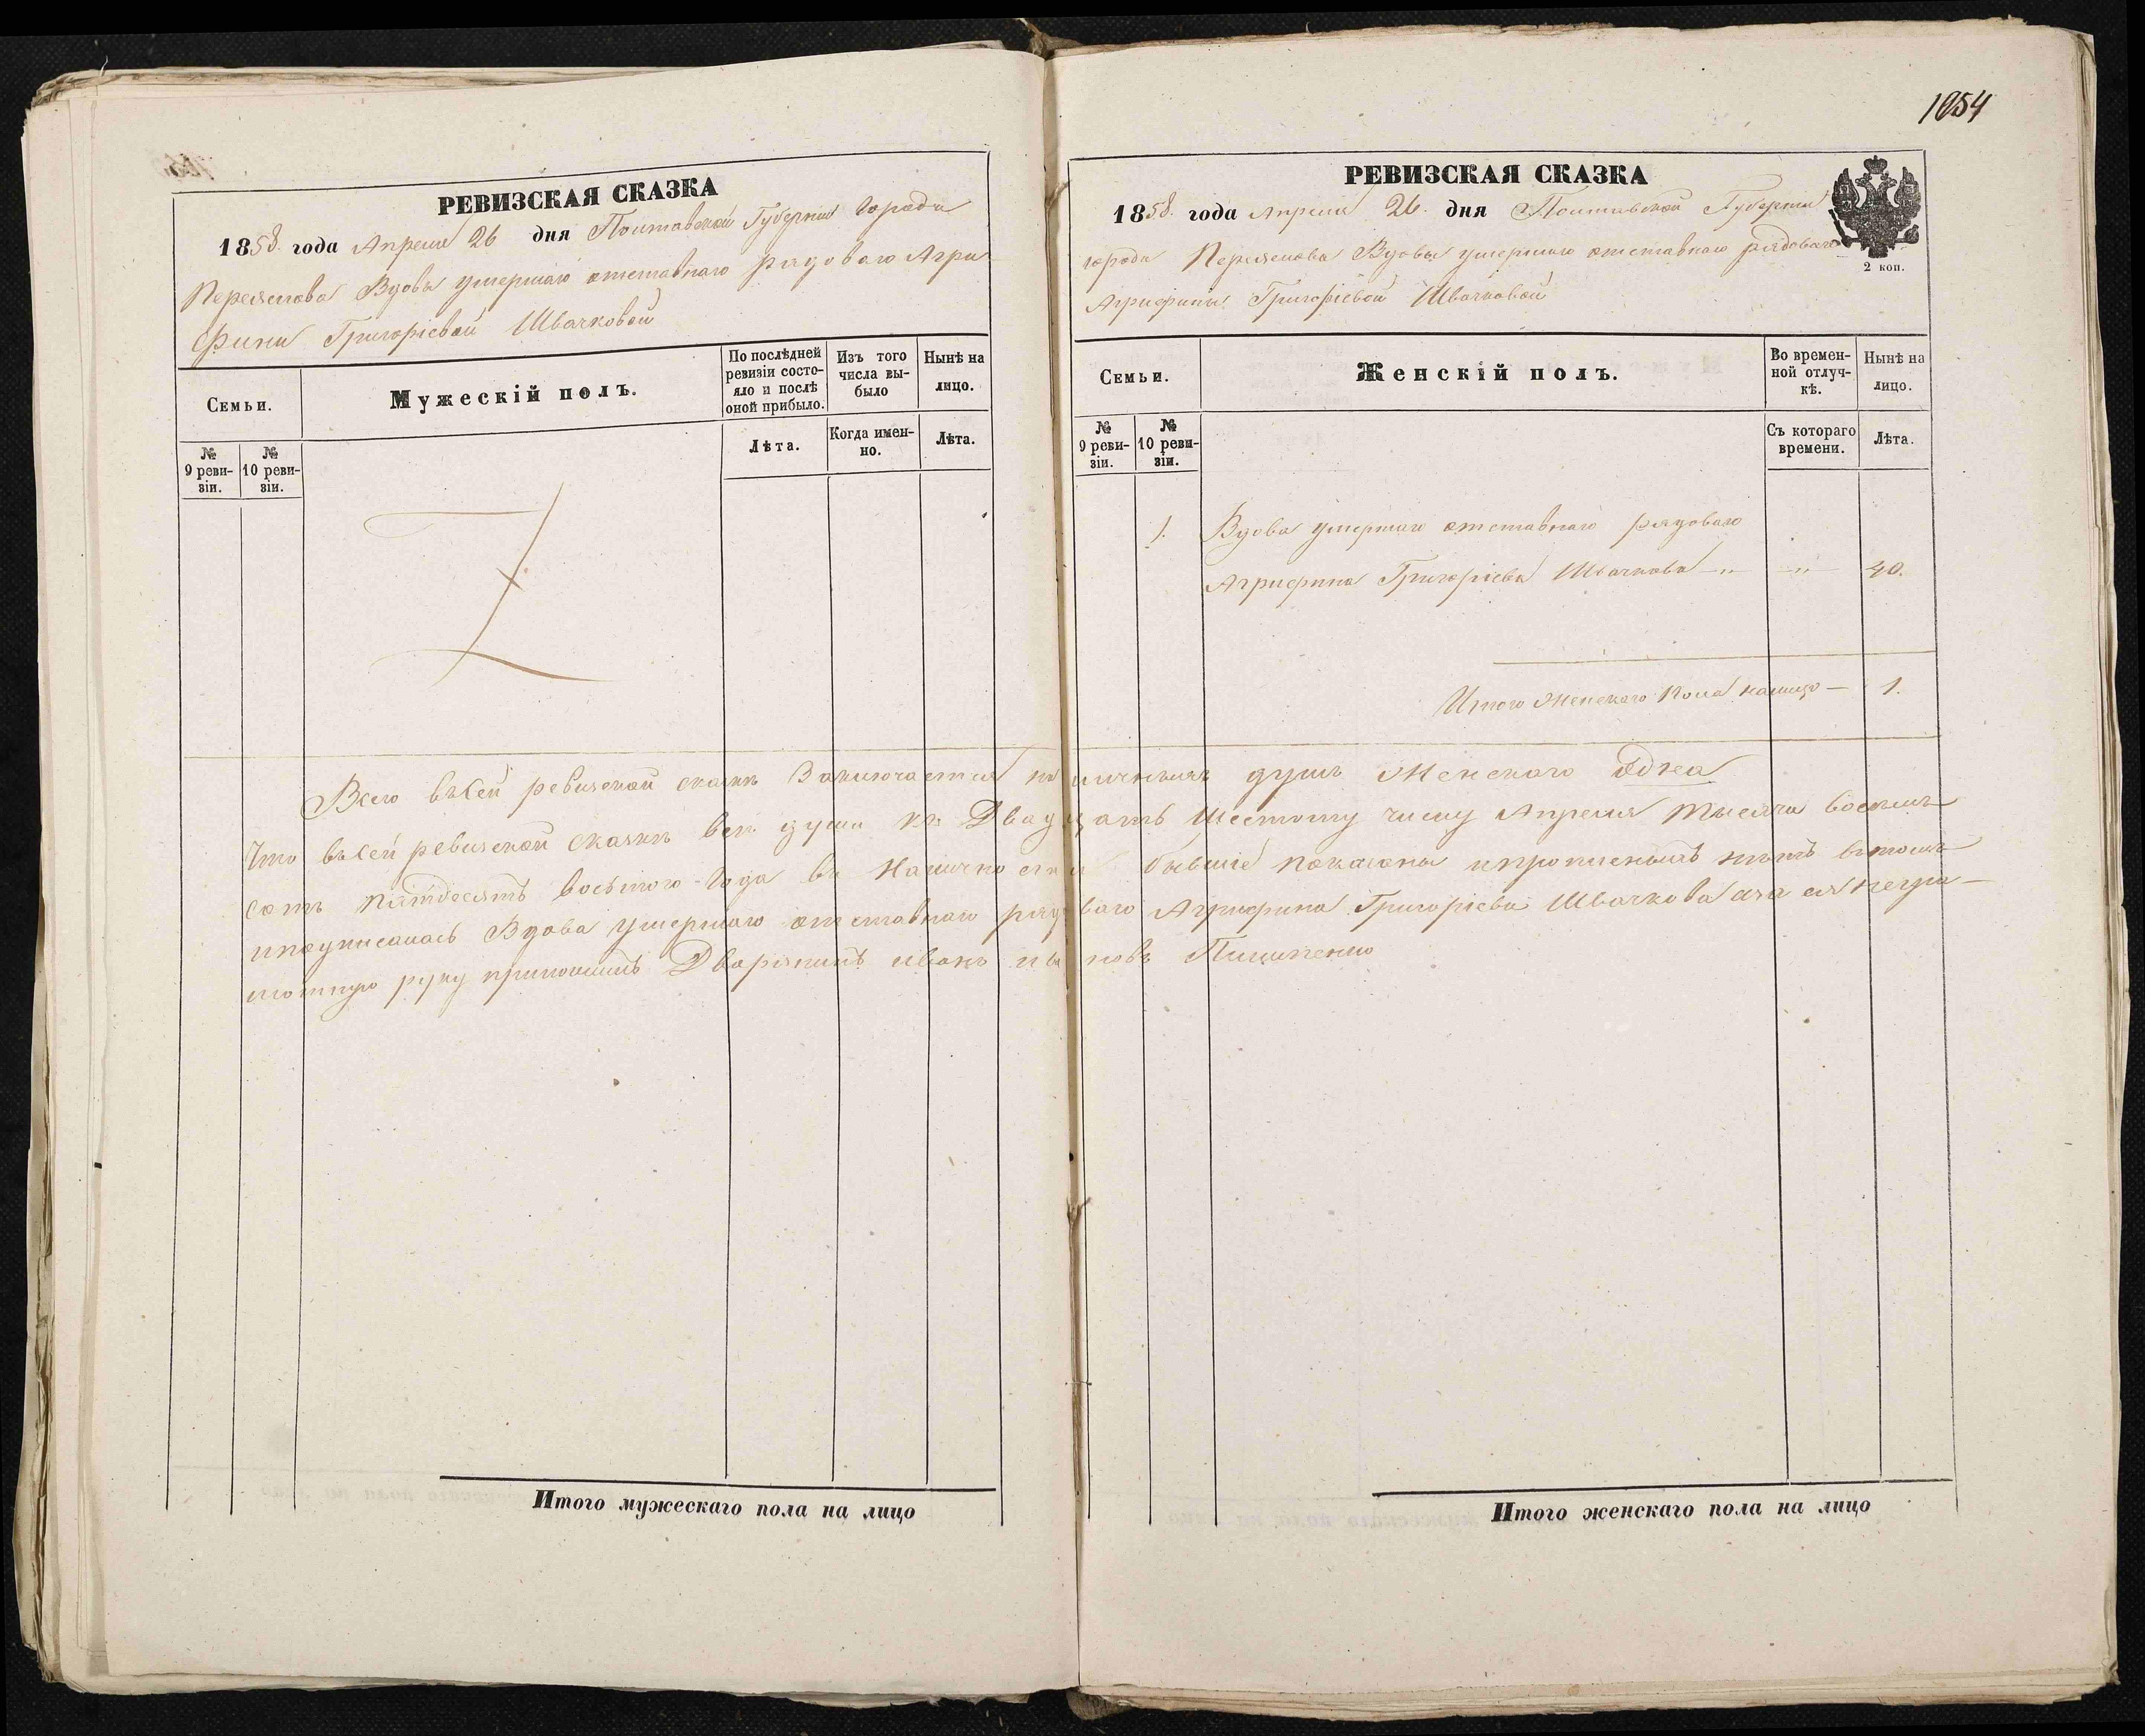 1054
РЕВИЗСКАЯ СКАЗКА
1858. года Апреля 26 дня Полтавской Губернии Города
Переяслова Вдовы умершаго отставнаго рядоваго Агри-
фины Григоріевой Швачковой
Семьи.
Мужескій полъ.
По послѣдней ревизіи состояло и послѣ оной прибыло.
Изъ того числа выбыло
Нынѣ на лицо.
№ 9 ревизіи.
№ 10 ревизіи.
Лѣта.
Когда именно.
Лѣта.
РЕВИЗСКАЯ СКАЗКА
1858. года Апреля 26. дня Полтавской Губерніи
города Переяслова Вдовы умершаго отставнаго рядоваго
Агрифины Григоріевой Швачковой
2 коп.
Семьи.
Женскій полъ.
Во временной отлучкѣ.
Нынѣ на лицо.
№ 9 ревизіи.
№ 10 ревизіи.
Съ котораго времени.
Лѣта.
1. Вдова умершаго отставнаго рядоваго
Агрифина Григоріева Швачкова —„— —„— 40.
Итого Женскаго Пола налицо — 1.
Всего въ сей ревизской сказкѣ Заключается наличныхъ душъ Женскаго Одна
Что въ сей ревизской сказкѣ всѣ души къ Двадцать Шестому числу Апреля Тысяча восемь
сотъ пятдесятъ восьмого Года въ Наличности бывшіе показаны и прописныхъ нѣтъ втомъ
иподписалась Вдова Умершаго отставнаго рядоваго Агрифина Григоріева Швачкова аза ея негра-
мотную руку приложилъ Дворянинъ Иванъ
Итого мужескаго пола на лицо
Итого женскаго пола на лицо